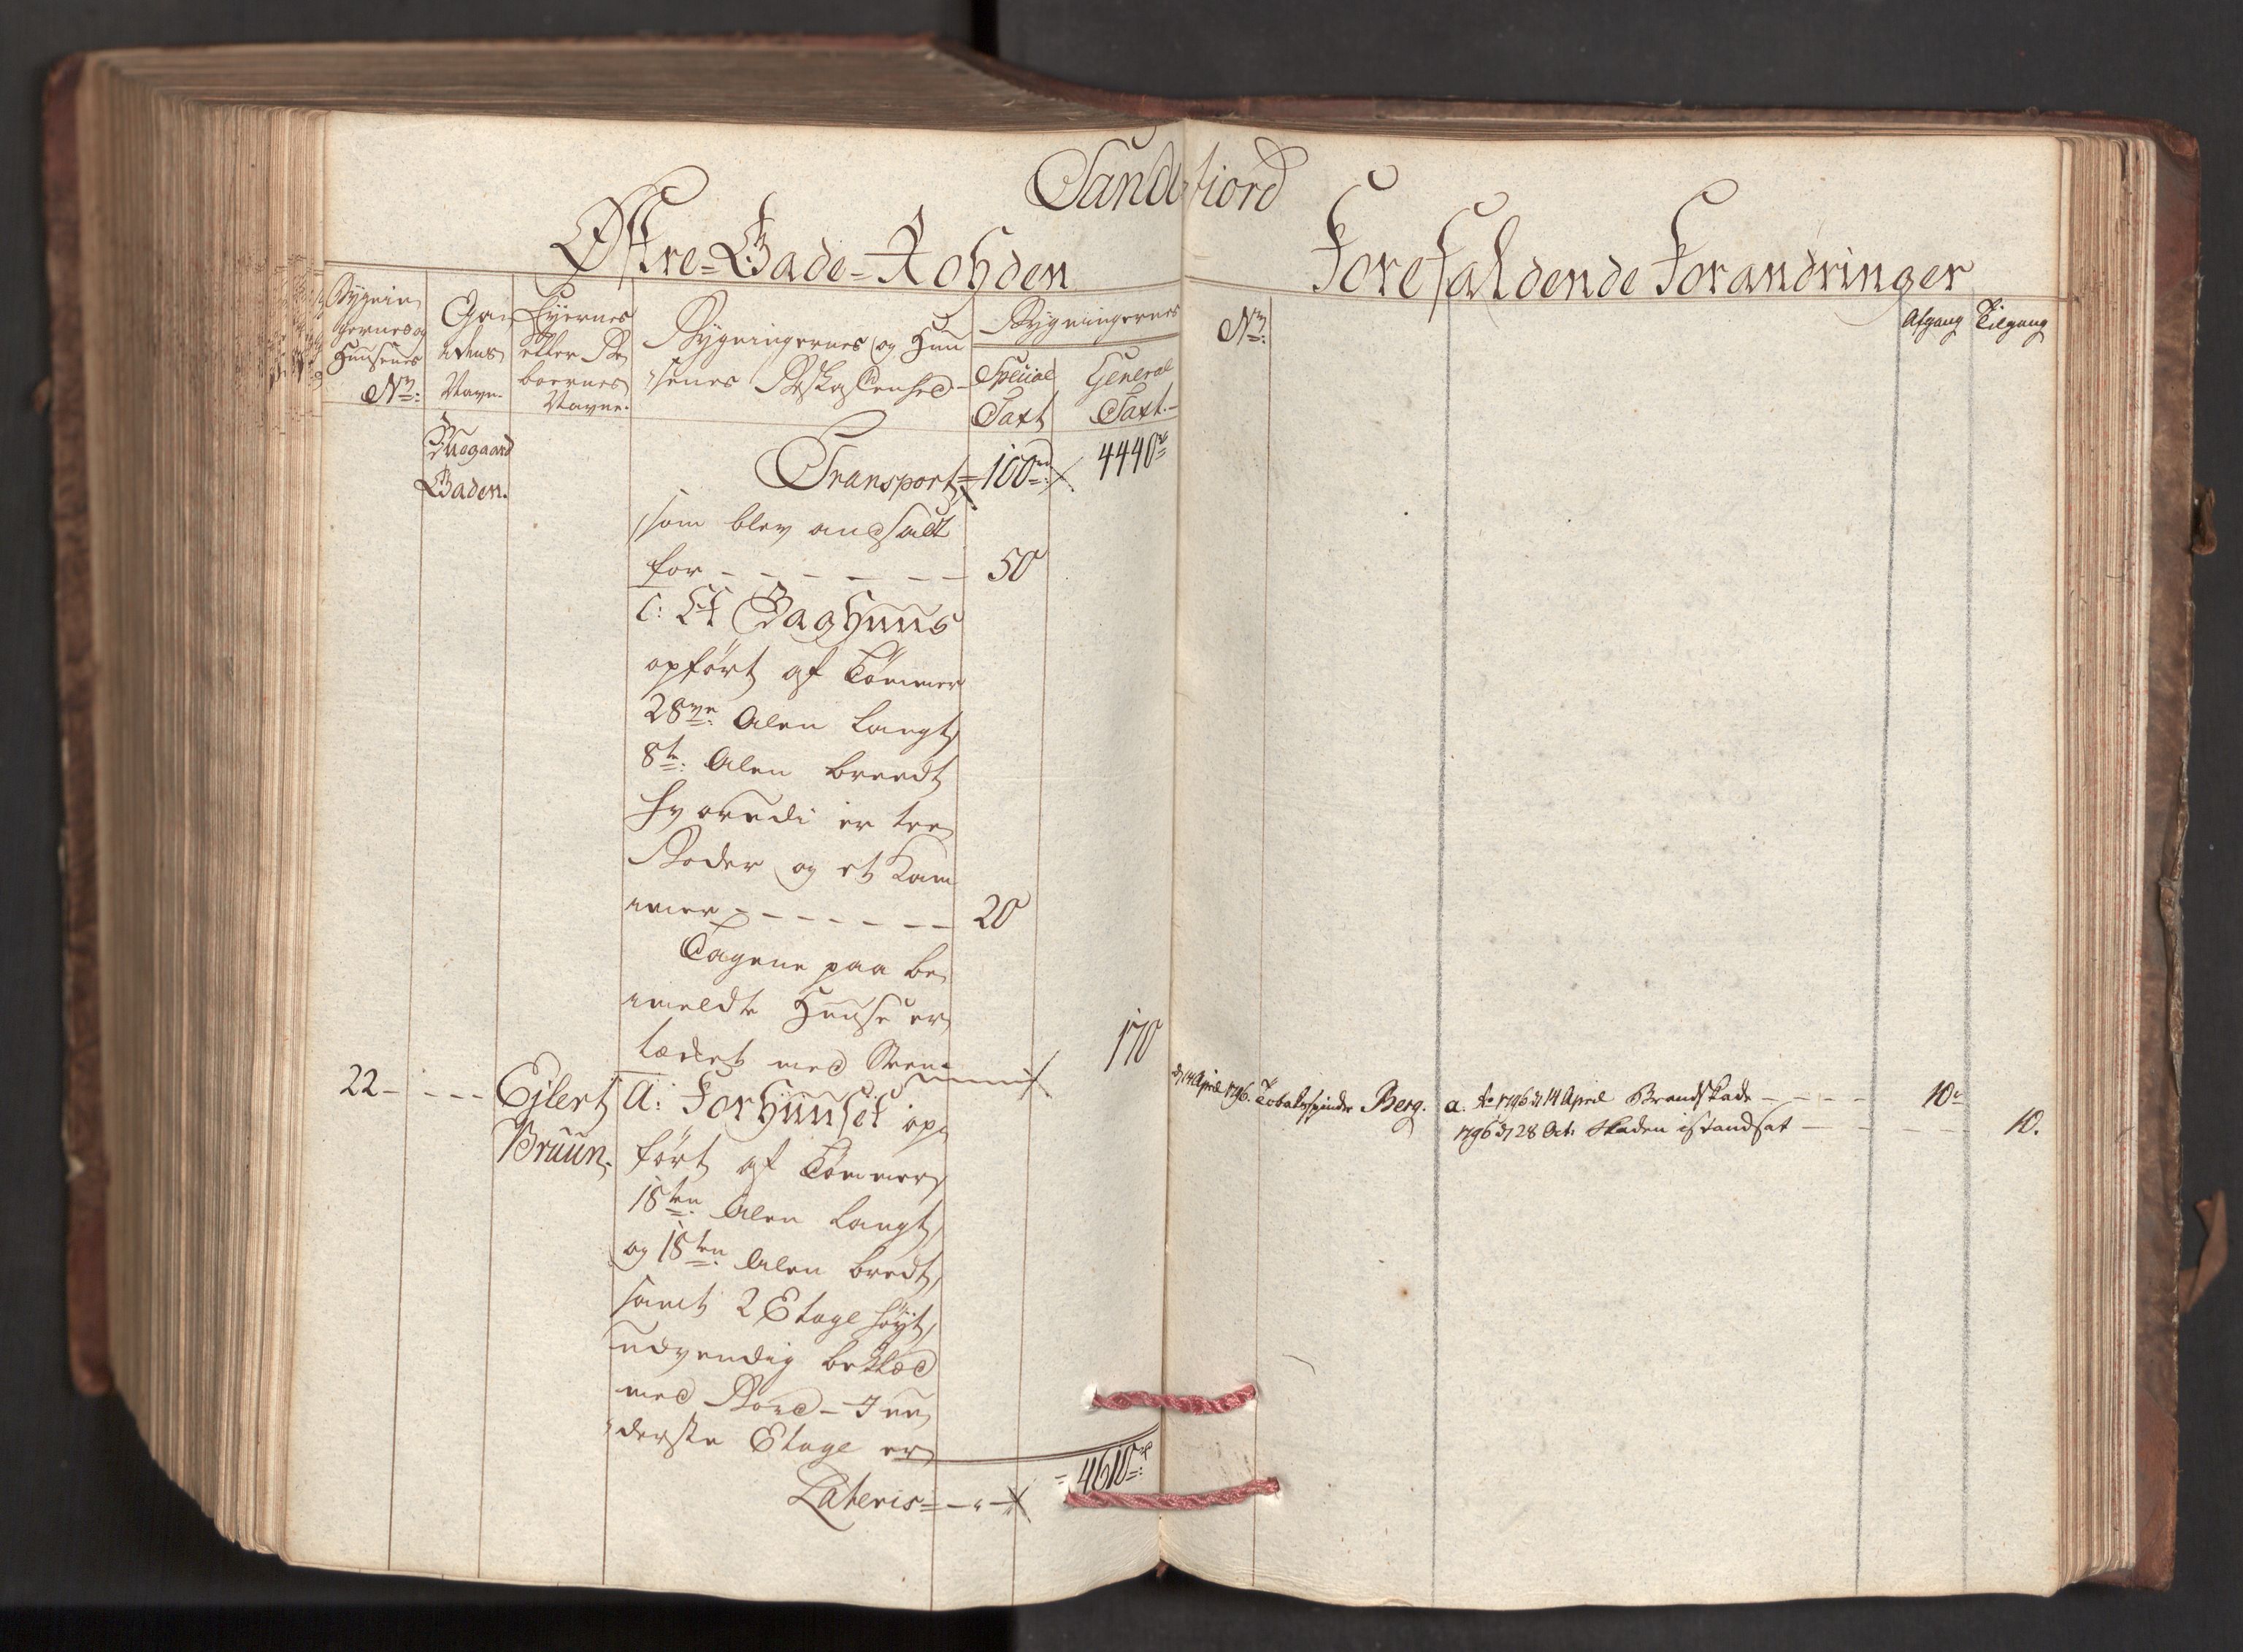 Sandefiord
Østre-Gade-Rohden
Bygnin
gernes og
Huusenes
No:
Ga
dens
Navn.
Eyernes
eller Be
boernes
Navne.
Bygningernes og Huu
senes Beskaffenhed
Bygningernes
Special
Taxt
General
Taxt.
Gaden.
Transport = 100 rd: 4440 rd
som blev andsadt
for - - - - - - 50
c: Et Baghuus
opført af Tømmer
28ve: Alen Langt
8te: Alen breedt
hvorudi er tre
Boder og et Kam
mer - - - - - - 20
Tagene paa be
meldte Huuse er
tæcket med Steen 170
22 - - - - Ejlert
Bruun.
a: Forhuuset op
ført af Tømmer
18ten: Alen Langt
og 15ten: Alen bredt,
samt 2 Etage høyt,
udvendig beklæd
med Bord - I un
derste Etage er
Lateris = - - = 4610 rd:
Forefaldende Forandringer
No:
Afgang
Tilgang
d 14 April 1796. Tobakspinder Berg. a. Ao 1796 d 14 April Brandskade - - - - 10
1796 d 28 Oct: Skaden istandsat - - - - 10.